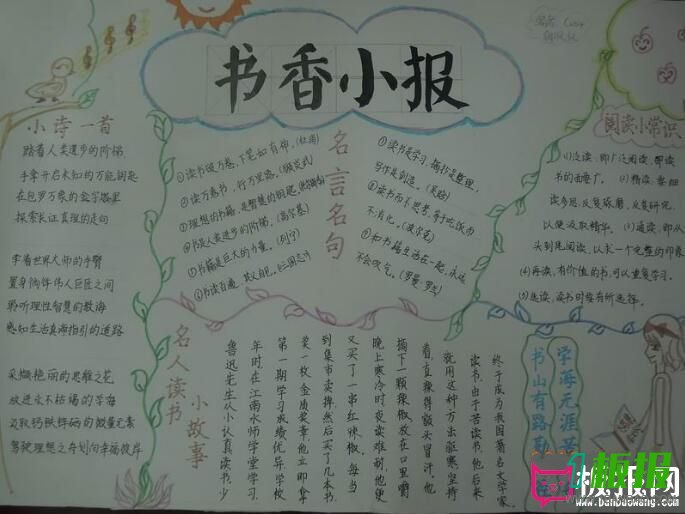 书香小报
小诗一首
踏着人类进步的阶梯
手拿开启未知的万能钥匙
在包罗万象的金字塔里
探索长江真理的走向
牵着世界大师的手臂
置身俩饽伟人巨匠之间
聆听理性智慧的教诲
感知生活真海指引的道路
采撷艳丽的思维之花
放进永不枯竭的学海
汲取钙铁锌硒的微量元素
驾驶理想之舟划向幸福彼岸
名言名句
①读书破万卷,下笔如有神。(杜甫)
②读万卷书,行万里路。(顾炎武)
③理想的书籍,是智慧的钥匙。
④书是人类进步的阶梯。(高尔基)
⑤书籍是巨大的力量。(列宁)
⑥书读百遍,其义自见。《三国志》
①读书是学习,摘抄是整理,
写作是创造。(吴晗)
②读书而不思考,等于吃饭而
不消化。(波尔克)
③和书籍生活在一起,永远
不会叹气。(罗曼·罗兰)
阅读小常识
(1)泛读,即广泛阅读,即读
书的面要广。(2)精读,要细
读多思,反复琢磨,反复研究,
以便汲取精华。(3)通读,即从
头到尾阅读,以求一个完整的印象
(4)再读,有价值的书可以重复学习。
(5)选读,读书时要有所选择。
名人读书
小故事
鲁迅先生从小认真读书。少
年时在江南水师学堂学习,
第一期学习成绩优异,学校
奖一枚金质奖章,他立即拿
到集市卖掉,然后买了几本书,
又买了一串红辣椒。每当
晚上寒冷时夜读难耐,他便
摘下一颗辣椒,放在口里嚼
着,直辣得额头冒汗。他
就用这种方法驱寒坚持
读书。由于苦读书,他后来
终于成为我国著名文学家。
书山有路勤
学海无涯苦
板报网
www.banbaowang.com